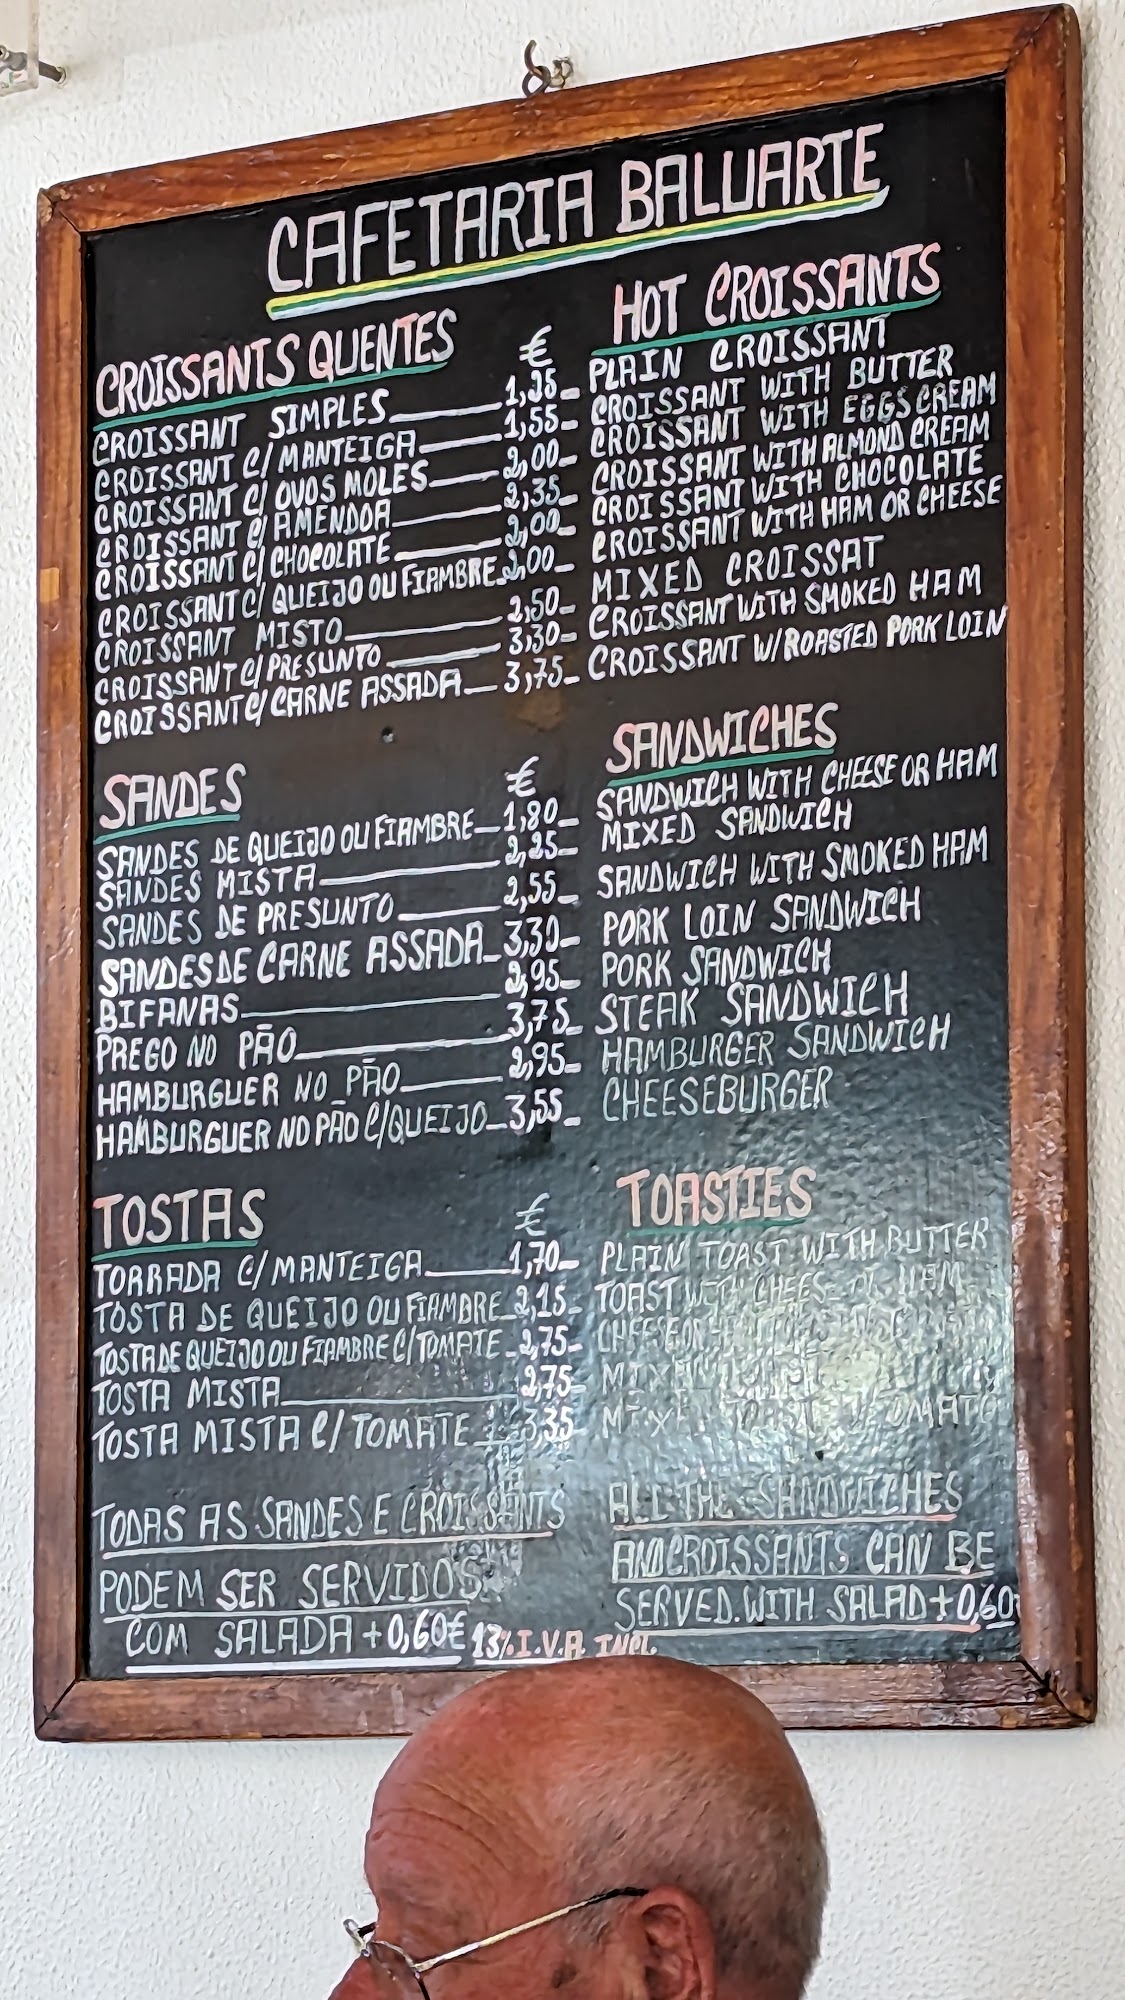 CAFETARIA BALUARTE
CROISSANTS QUENTES € HOT CROISSANTS
CROISSANT SIMPLES 1,35 PLAIN CROISSANT
CROISSANT C/MANTEIGA 1,55 CROISSANT WITH BUTTER
CROISSANT C/ OVOS MOLES 2,00 CROISSANT WITH EGGS CREAM
CROISSANT C/ AMENDOA 2,35 CROISSANT WITH ALMOND CREAM
CROISSANT C/ CHOCOLATE 2,00 CROISSANT WITH CHOCOLATE
CROISSANT C/ QUEIJO OU FIAMBRE 2,00 CROISSANT WITH HAM OR CHEESE
CROISSANT MISTO 2,50 MIXED CROISSAT
CROISSANT C/PRESUNTO 3,30 CROISSANT WITH SMOKED HAM
CROISSANT C/CARNE ASSADA 3,75 CROISSANT W/ROASTED PORK LOIN
SANDES € SANDWICHES
SANDES DE QUEIJO OU FIAMBRE 1,80 SANDWICH WITH CHEESE OR HAM
SANDES MISTA 2,25 MIXED SANDWICH
SANDES DE PRESUNTO 2,55 SANDWICH WITH SMOKED HAM
SANDES DE CARNE ASSADA 3,30 PORK LOIN SANDWICH
BIFANAS 2,95 PORK SANDWICH
PREGO NO PÃO 3,75 STEAK SANDWICH
HAMBURGUER NO PÃO 2,95 HAMBURGER SANDWICH
HAMBURGUER NO PÃO C/QUEIJO 3,55 CHEESEBURGER
TOSTAS € TOASTIES
TORRADA C/MANTEIGA 1,70 PLAIN TOAST WITH BUTTER
TOSTA DE QUEIJO OU FIAMBRE 2,15 TOAST WITH CHEESE OR HAM
TOSTA DE QUEIJO OU FIAMBRE C/TOMATE 2,75 CHEESE OR
TOSTA MISTA 2,75
TOSTA MISTA C/TOMATE 3,35 TOMATO
TODAS AS SANDES E CROISSANTS ALL THE SANDWICHES
PODEM SER SERVIDOS AND CROISSANTS CAN BE
COM SALADA +0,60€ SERVED WITH SALAD +0,60
13% I.V.A. INCL.